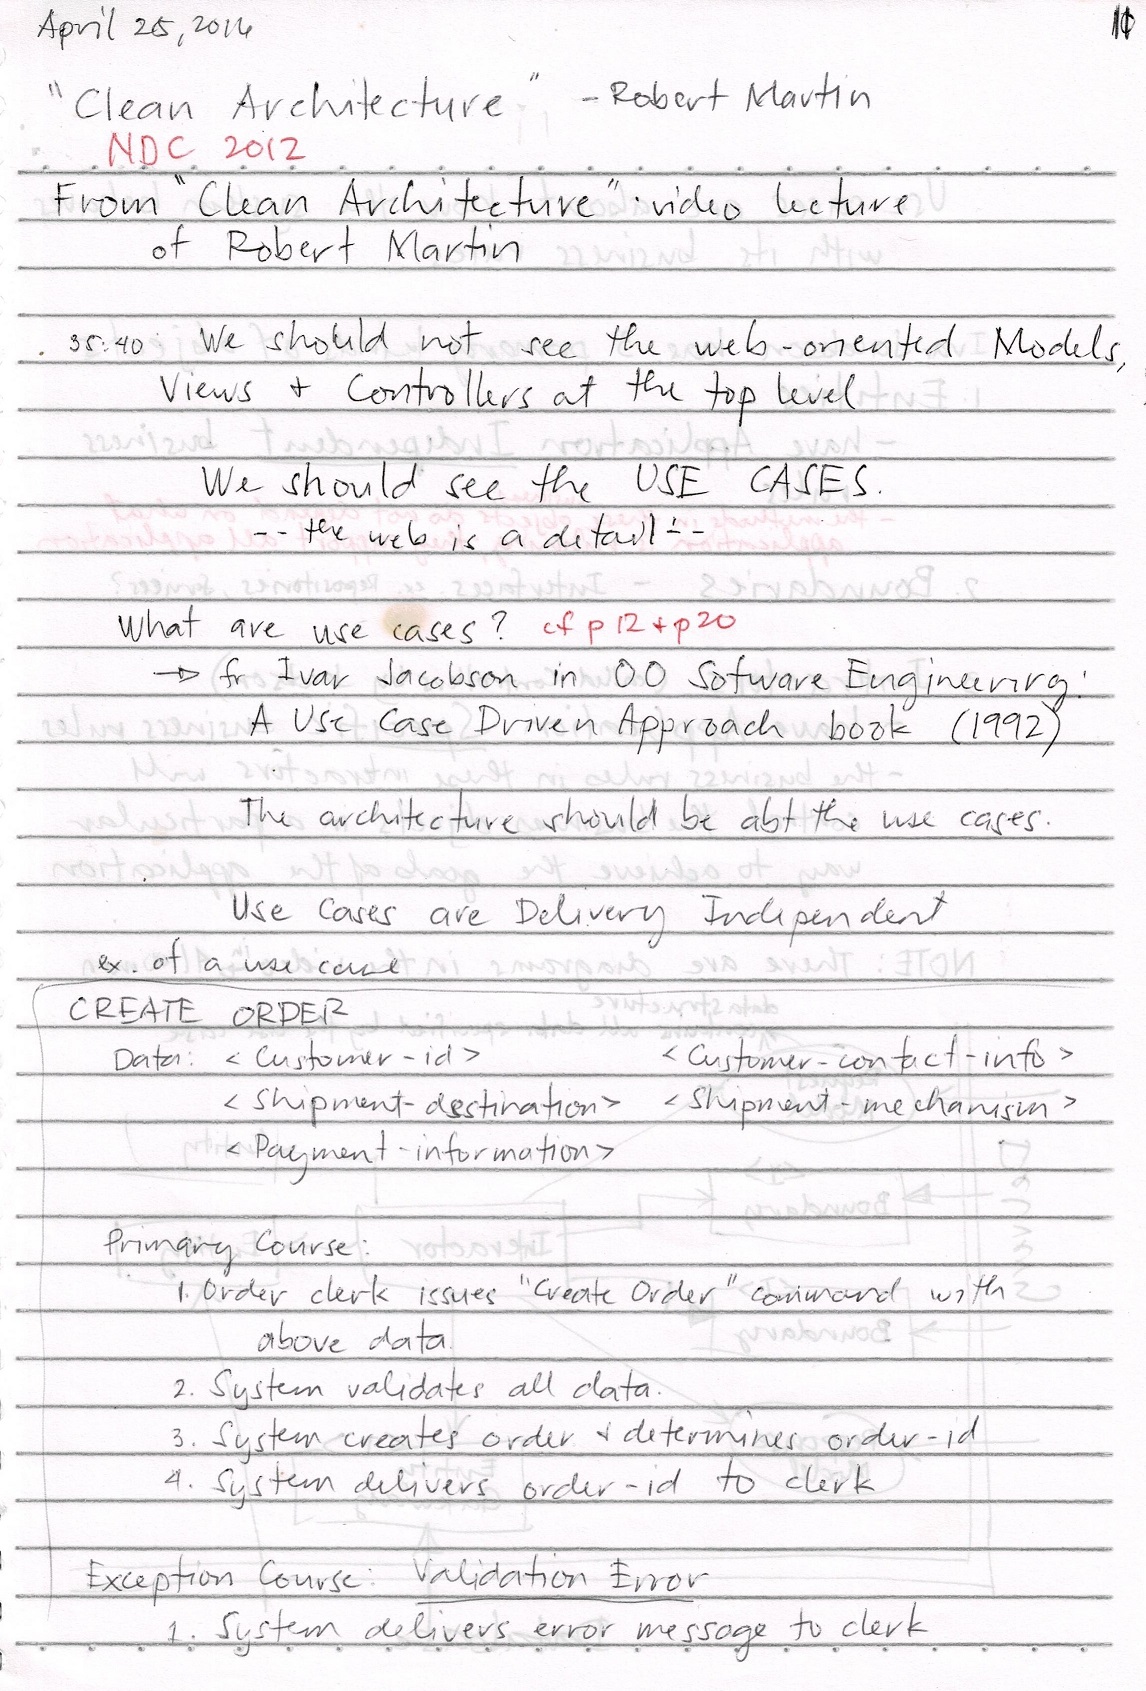 April 25, 2016
"Clean Architecture" - Robert Martin
NDC 2012
From "Clean Architecture" video lecture
of Robert Martin
35:40 We should not see the web-oriented Models,
Views + Controllers at the top level
We should see the USE CASES.
-- the web is a detail! --
What are use cases? cf p 12 + p20
→ fr Ivar Jacobson in OO Software Engineering:
A Use Case Driven Approach book (1992)
The architecture should be abt the use cases.
Use Cases are Delivery Independent
ex. of a use case
CREATE ORDER
Data: <Customer-id> <Customer-contact-info>
<Shipment-destination> <Shipment-mechanism>
<Payment-information>
Primary Course:
1. Order clerk issues "Create Order" command with
above data.
2. System validates all data.
3. System creates order + determines order-id
4. System delivers order-id to clerk
Exception Course: Validation Error
1. System delivers error message to clerk